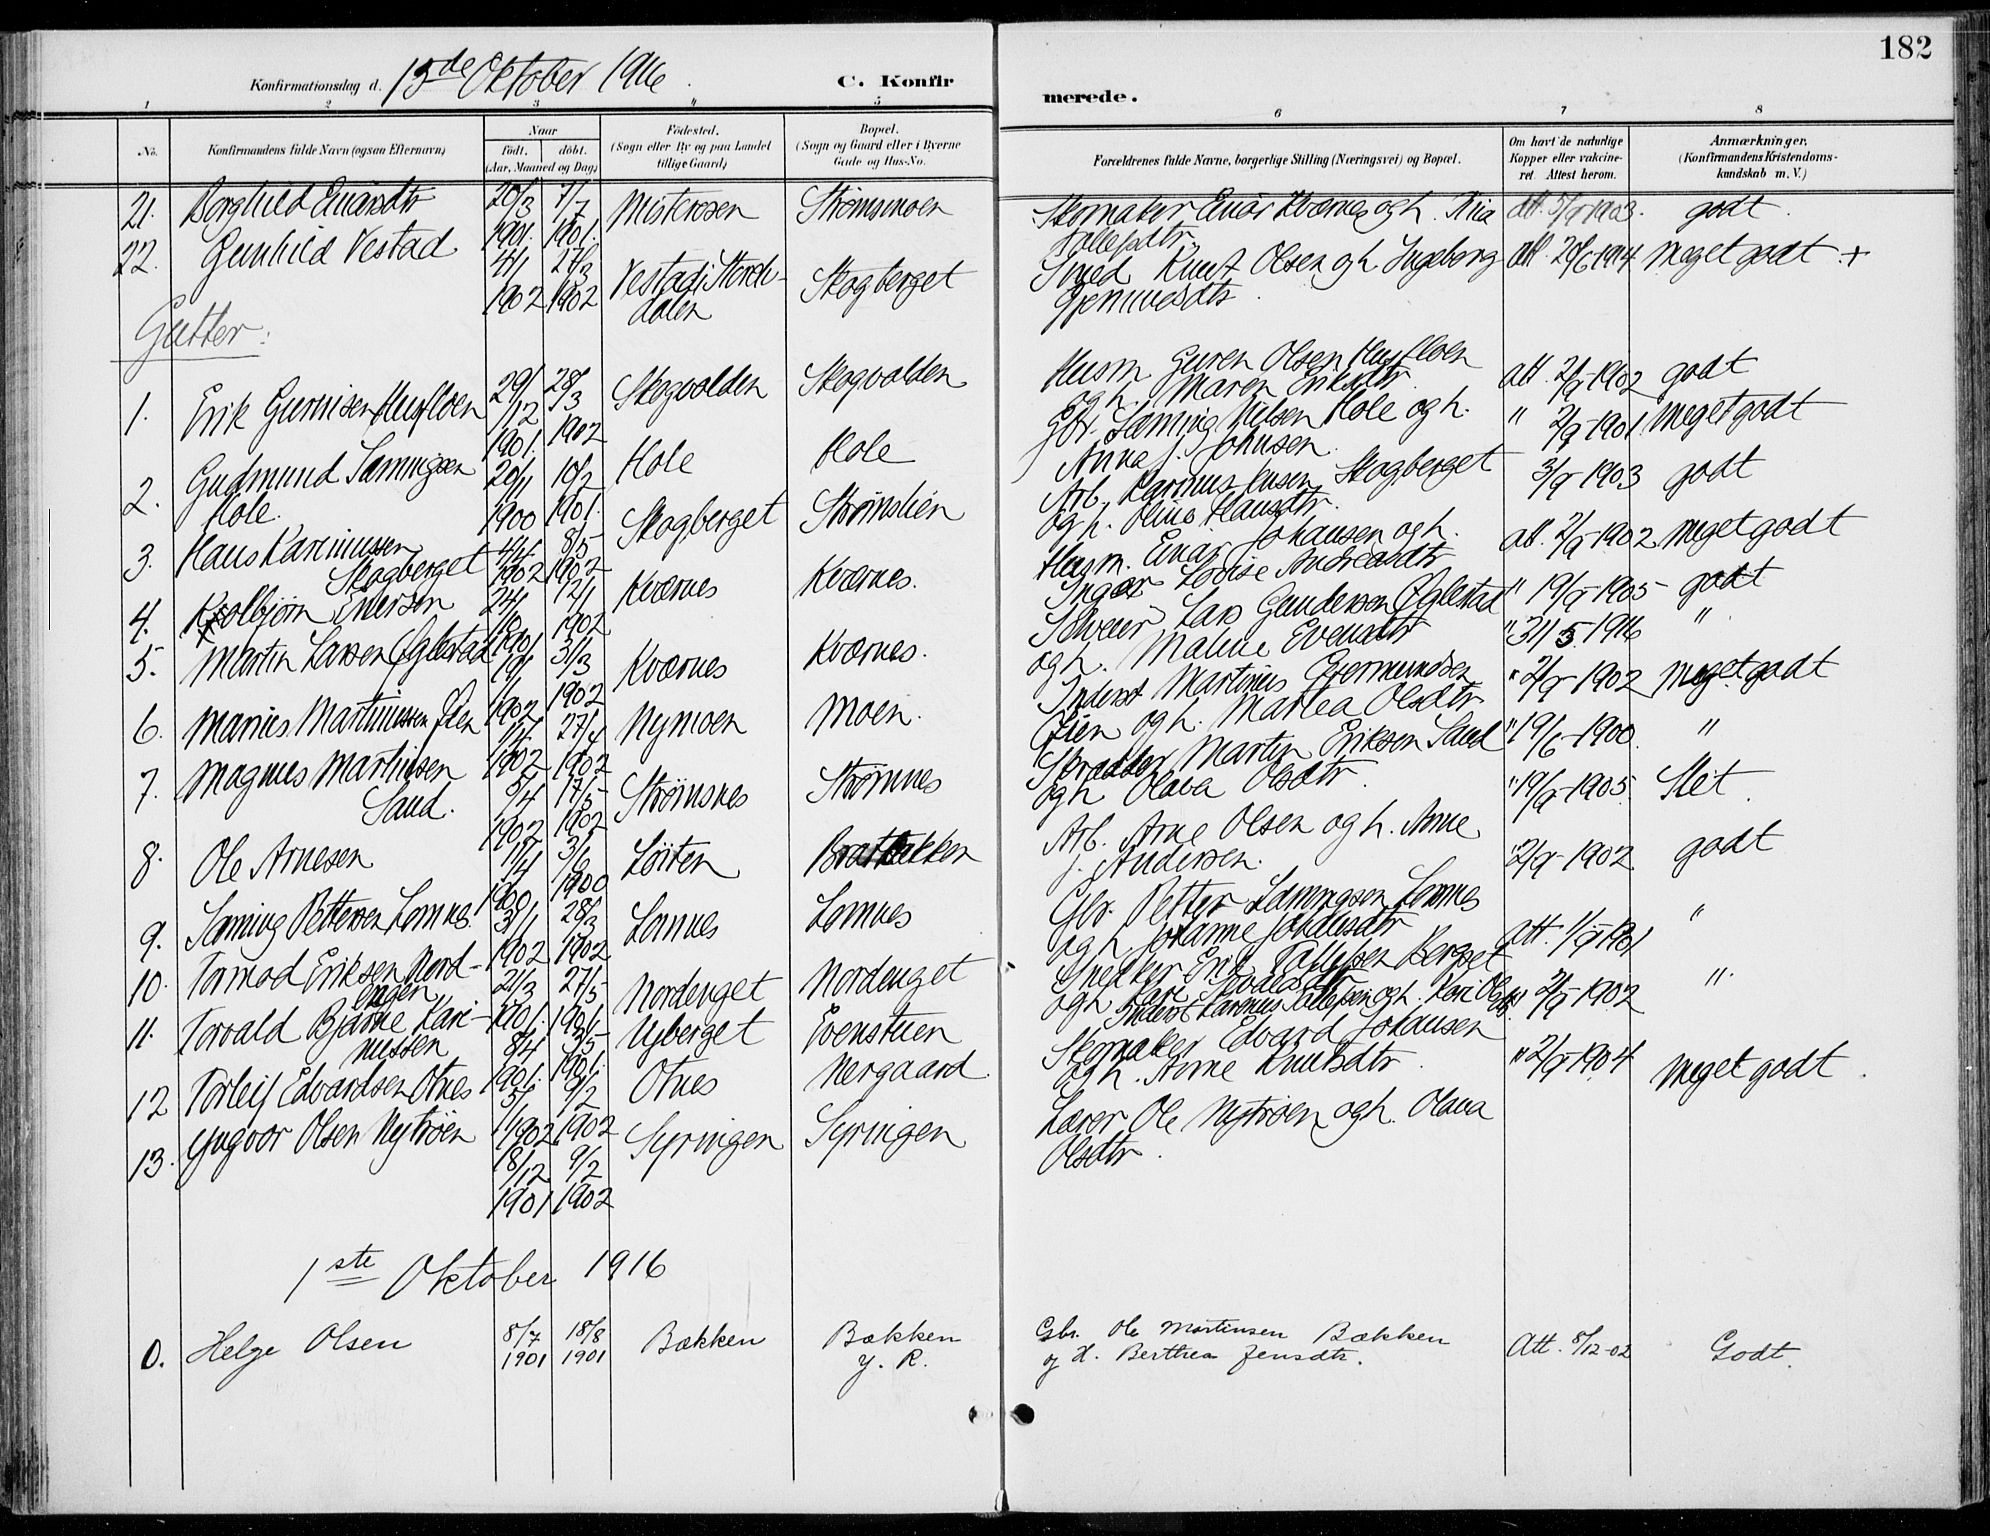 182
Konfirmationsdag d. 15de Oktober 1916. C. Konfirmerede.
1 2 3 4 5 6 7 8
No.
Konfirmandens fulde Navn (ogsaa Efternavn)
Naar
født. døbt.
(Aar, Maaned og Dag)
Fødested.
(Sogn eller By og paa Landet
tillige Gaard)
Bopæl.
(Sogn og Gaard eller i Byerne
Gade og Hus-No.
Forældrenes fulde Navne, borgerlige Stilling (Næringsvei) og Bopæl.
Om havt de naturlige
Kopper eller vakcine-
ret. Attest herom.
Anmærkninger.
(Konfirmandens Kristendoms-
kundskab m. V.)
21. Borghild Einarsdtr 20/3 1901. 7/7 1901. Misterosen Strømsmoen Skomaker Einar Kværnes og h. att. 5/9 1903. godt.
22. Gunhild Vestad 4/1 1902 27/3 1902 Vestad i Stordalen Skogberget Smed Knut Olsen og h. Ingeborg att. 20/6 1914 Meget godt +
Gutter:
1. Erik Gurnisen Husfloen 29/12 1901. 28/3 1902 Skogvolden Skogvolden Husm Guren Olsen Husfloen
og h. Maren Eriksdtr. att. 2/9-1902 godt
2. Gudmund Sæmingsen
Hole. 20/11 1900 10/2 1901. Hole Hole Gbr. Sæming Nilsen Hole og h.
Anna J. Johnsen. " 2/9-1901. Meget godt
3. Hans Karinussen
Skogberget 4/4 1902 8/5 1902 Skogberget Strømslien Arb. Karinus Skogberget
og h. Oline Hansdtr. 3/9 1903 godt
4. Kolbjørn Einersen 24/10 1901 12/1 1902 Kværnes Kværnes. Husm. Einar Johansen og h.
Inger Lovise Andreasdtr att. 2/9-1902. Meget godt
5. Martin Larsen Øglestad 19/1 1902 31/3 1902 Kværnes Kværnes. Lars Gundersen Øglestad
og h. Maline Evensdtr " 19/9-1905 godt
" 31/5. 1916 "
6. Marius Martinussen Øien 1/4 1902 27/4 1902 Nymoen Moen. Inderst Martinus Gjermundsen
Øien og h. Martea Olsdtr. " 2/9-1902 Meget godt
7. Magnus Martinsen
Sand. 5/4 1902 17/5 1902 Strømsnes Strømnes Skrædder Martin Eriksen Sand
og h Olava Olsdtr. " 19/6-1900. "
8. Ole Arnesen 11/4 1900 3/6 1900 Løiten Bratbakken Arb. Arne Olsen og h. Anne
f. Andersen. " 19/9-1905. Slet.
9. Sæming Pettersen Lomnes. 31/1 1902 28/3 1902 Lomnes Lomnes Gbr. Petter Sæmingsen Lomnes
og h. Johanne Johansdtr " 2/9-1902 godt
10. Tormod Eriksen Nord-
engen 21/3 1901. 27/5 1901. Nordenget Nordenget Snekker Erik Tollefsen Bergset
og h Kari att. 1/9 1901 "
11. Torvald Bjarne Kari-
nussen 8/4 1901. 3/5 1901. Ugberget Evenstuen Inderst Karinus Tollefsen og h. Kari Olsdtr. " 2/9-1902 "
12 Torleif Edvardsen Otnes 5/1 1902 9/2 1902 Otnes Nergaard. Skomaker Edvard Johansen
og h. Anne Knutsdtr. " 2/9-1904 Meget godt.
13. Yngvar Olsen Nystrøen 18/12 1901 9/2 1902 Syringen Syringen Lærer Ole Nystrøen og h. Olava
Olsdtr.
1ste Oktober 1916
0. Helge Olsen 8/7 1901 18/8 1901 Bækken Bækken
Y. R. Gbr. Ole Martinsen Bækken
og H. Berthea Jensdtr. Att. 8/12-02 Godt.